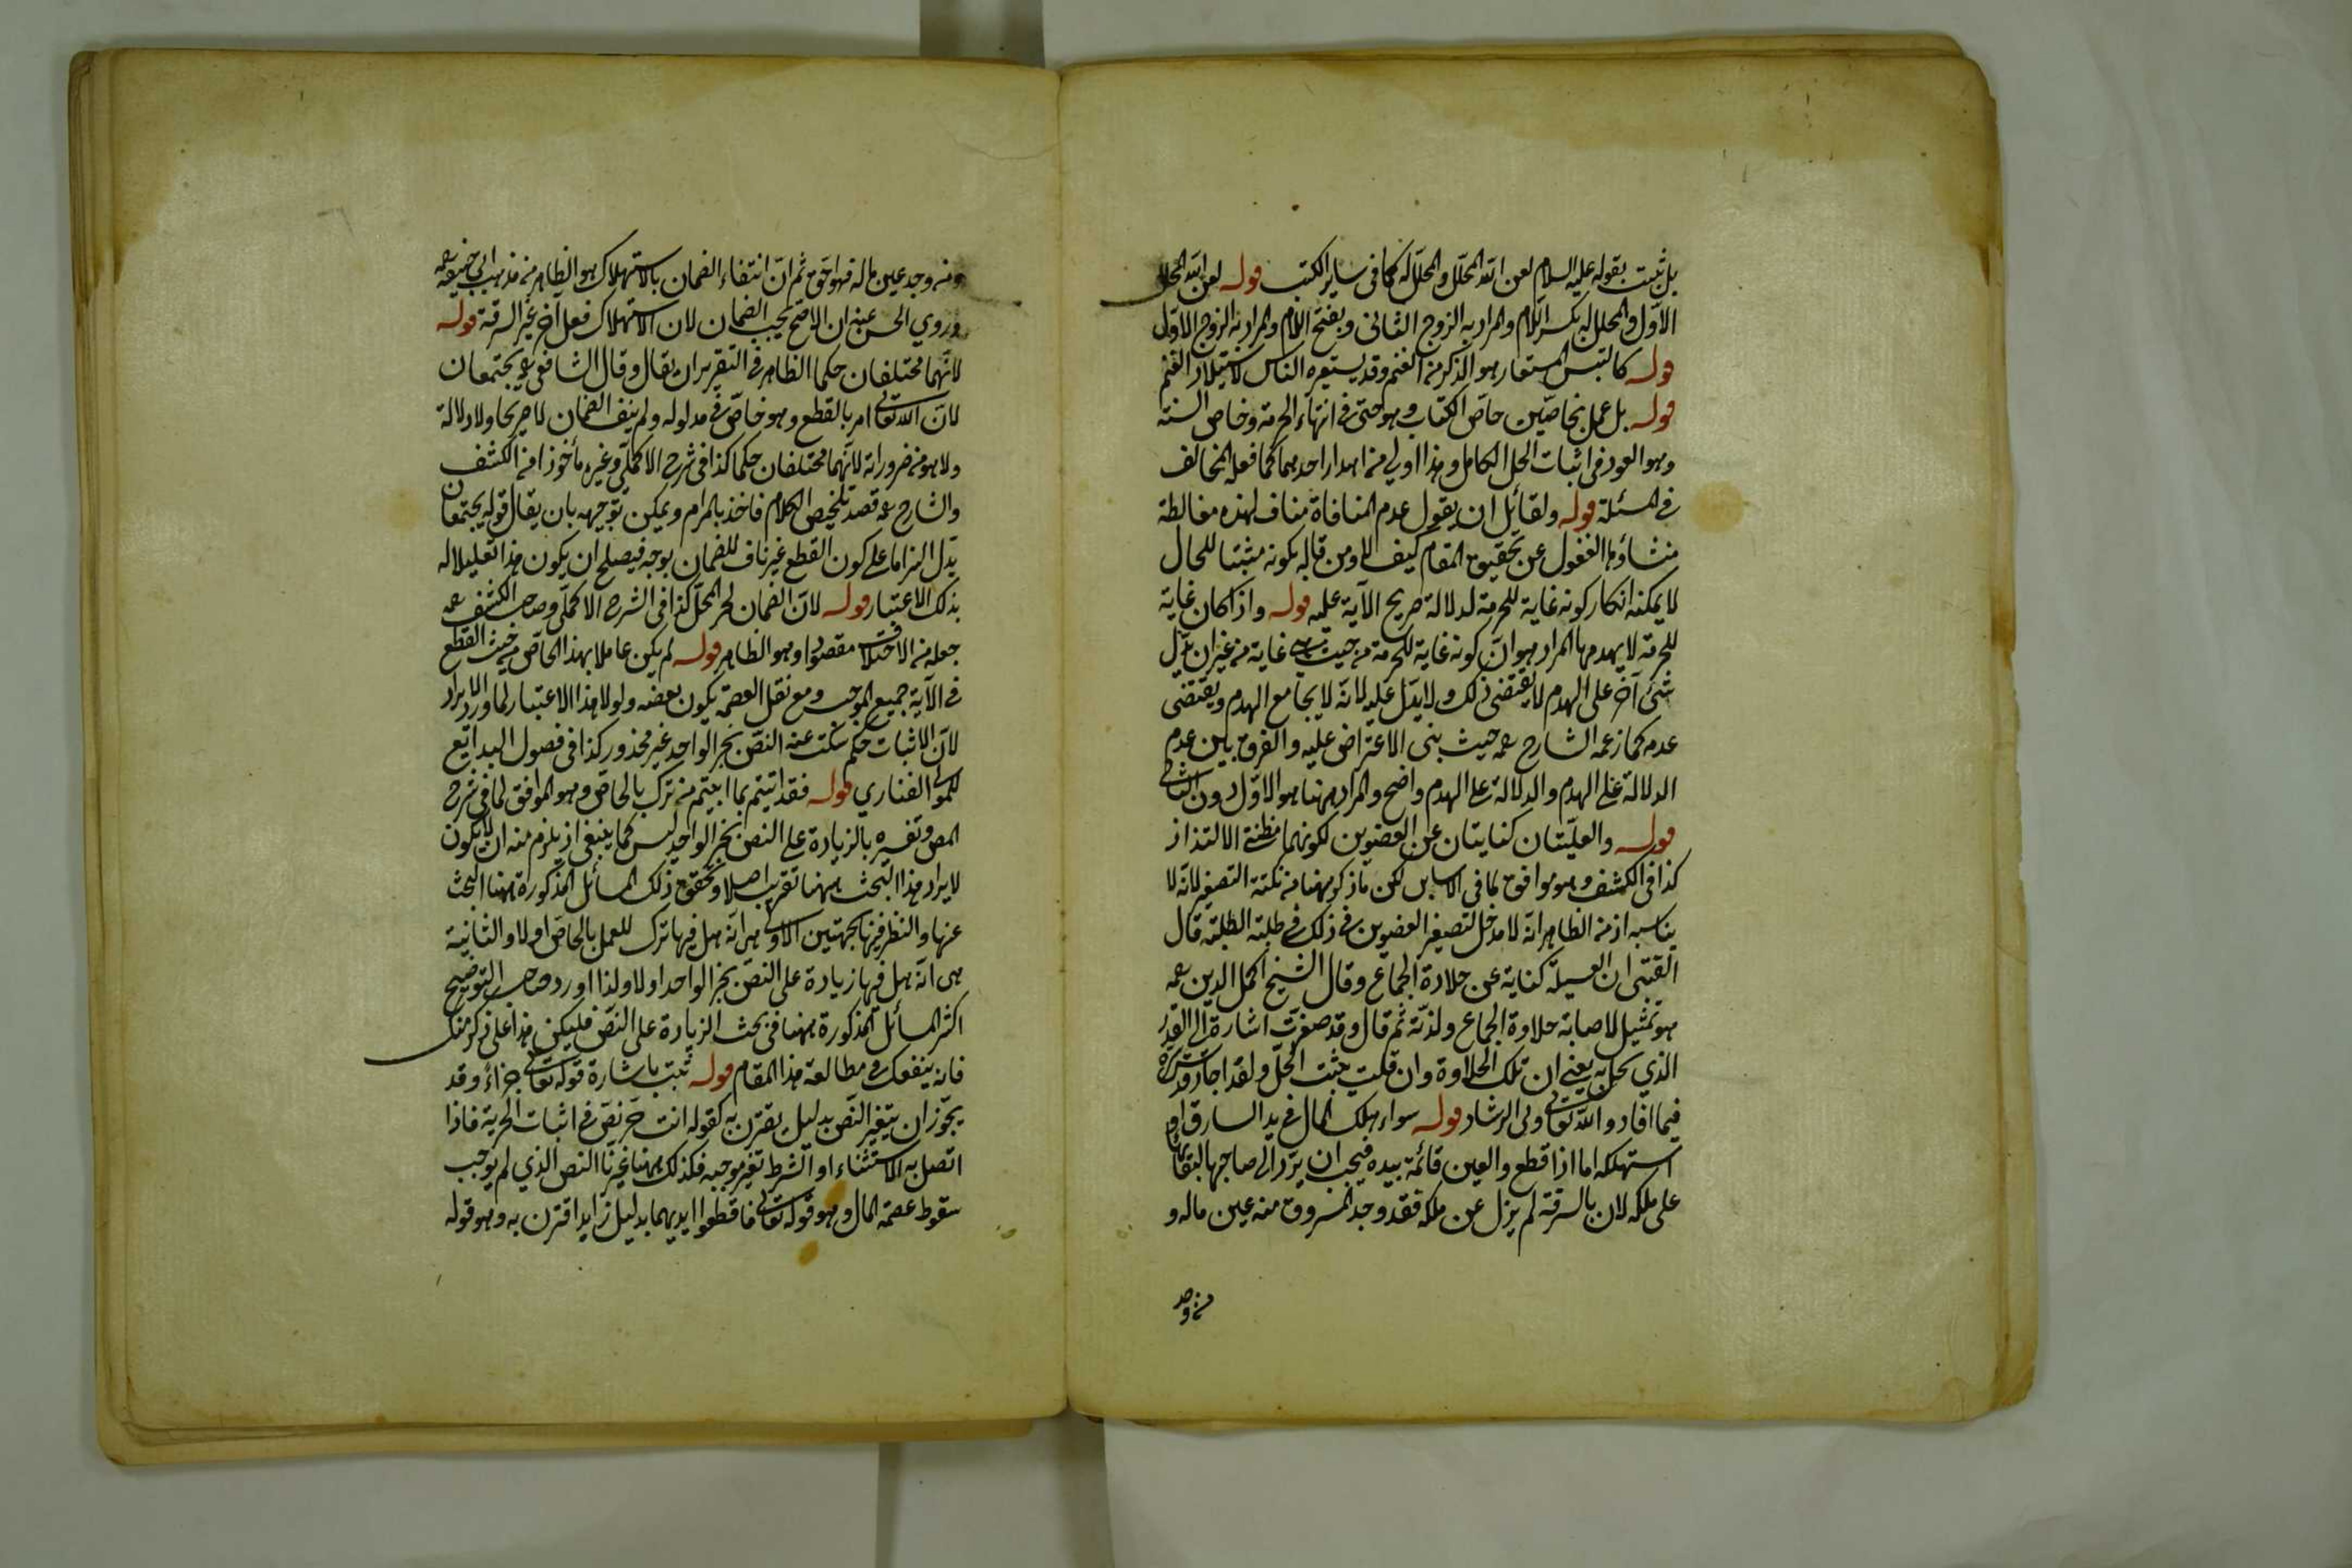 بل ثبت بقوله عليه السلام لعن الله المحلل والمحلل له كما في ساير الكتب قوله لعن الله المحلل
الأول والمحلل له بكسر اللام والمراد به الزوج الثاني وبفتح اللام والمراد به الزوج الاول
قوله كالتيس المستعار هو الذكر من الغنم وقد يستعيره الناس لاستيلاد الغنم
قوله بل عمل بخاصين خاص الكتاب وهو حتى في انتهاء الحرمة وخاص السنة
وهو العود في اثبات الحل الكامل وهذا اولى من اهدار احدهما كما فعله المخالف
في المسئلة قوله ولقائل ان يقول عدم المنافاة مناف لهذه مغالطة
منشاؤها الغفول عن تحقيق المقام كيف لا ومن قال بكونه مثبتا للحال
لا يمكنه انكار كونه غاية للحرمة لدلالة صريح الآية عليه قوله واذا كان غاية
للحرمة لا يهدمها المراد هو ان كونه غاية للحرمة من حيث هي غاية من غير ان يدل
شئ آخر على الهدم لا يقتضي ذلك ولا يدل عليه لا انه لا يجامع الهدم ويقتضي
عدمه كما زعمه الشارح رحمه حيث بنى الاعتراض عليه والفرق بين عدم
الدلالة على الهدم والدلالة على الهدم واضح والمراد ههنا هو الاول دون الثاني
قوله والعسيلتان كنايتان عن العضوين لكونهما مظنتي الالتذاذ
كذا في الكشف وهو موافق لما في الاساس لكن ما ذكر ههنا من نكتة التصغير لانه لا
يناسبه اذ من الظاهر انه لا مدخل لتصغير العضوين في ذلك في طلبة الطلبة قال
القتبى ان العسيلة كناية عن حلاوة الجماع وقال الشيخ اكمل الدين رحمه
هو تمثيل لاصابة حلاوة الجماع ولذته ثم قال وقد صغرت اشارة الى القدر
الذي يحل به يعني ان تلك الحلاوة وان قلت يثبت الحل ولقد اجاد قدس سره
فيما افاد والله تعالى ولي الرشاد قوله سواء هلك المال في يد السارق او
استهلكه اما اذا قطع والعين قائمة بيده فيجب ان يرد الى صاحبها لبقائها
على ملكه لان بالسرقة لم يزل عن ملكه فقد وجد المسروق منه عين ماله و
من وجد
ومن وجد عين ماله فهو احق ثم ان انتفاء الضمان بالاستهلاك هو الظاهر من مذهب ابي حنيفة رحمه
وروي الحسن عنه ان الاصح يجب الضمان لان الاستهلاك فعل آخر غير السرقة قوله
لانهما مختلفان حكما الظاهر في التقرير ان يقال وقال الشافعي رحمه يجتمعان
لان الله تعالى امر بالقطع وهو خاص في مدلوله ولم ينف الضمان لا صريحا ولا دلالة
ولا هو من ضروراته لانهما مختلفان حكما كذا في شرح الاكملي وغيره مأخوذا من الكشف
والشارح رحمه قصد تلخيص الكلام فاخذ بالمرام ويمكن توجيهه بان يقال قوله يجتمعان
يدل التزاما على كون القطع غير ناف للضمان بوجه فيصلح ان يكون هذا تعليلا له
بذلك الاعتبار قوله لان الضمان لجبر المحل كذا في الشرح الاكملي وصاحب الكشف رحمه
جعله من الاختلاف مقصودا وهو الظاهر قوله لم يكن عاملا بهذا الخاص من حيث القطع
في الآية جميع الموجب ومع نقل العصمة يكون بعضه ولولا هذا الاعتبار لما ورد الايراد
لان الاثبات حكم سكت عنه النص بخبر الواحد غير محذور كذا في فصول البدائع
للمولى الفناري قوله فقد اتيتم بما ابيتم من ترك بالخاص وهو الموافق لما في شرح
المص وتفسيره بالزيادة على النص بخبر الواحد ليس كما ينبغي اذ يلزم منه ان لا يكون
لايراد هذا البحث ههنا تقريب اصلا وتحقيق ذلك المسائل المذكورة ههنا البحث
عنها والنظر فيها بجهتين الاولى هي انه هل فيها ترك للعمل بالخاص اولا والثانية
هي انه هل فيها زيادة على النص بخبر الواحد اولا ولذا اورد صاحب التوضيح
اكثر المسائل المذكورة ههنا في بحث الزيادة على النص فليكن هذا على ذكر منك
فانه ينفعك في مطالعة هذا المقام قوله ثبت باشارة قوله تعالى جزاء وقد
يجوز ان يتغير النص بدليل يقترن به كقوله انت حر نص في اثبات الحرية فاذا
اتصل به الاستثناء او الشرط تغير موجبه فكذلك ههنا غيرنا النص الذي لم يوجب
سقوط عصمة المال وهو قوله تعالى فاقطعوا ايديهما بدليل زايد اقترن به وهو قوله